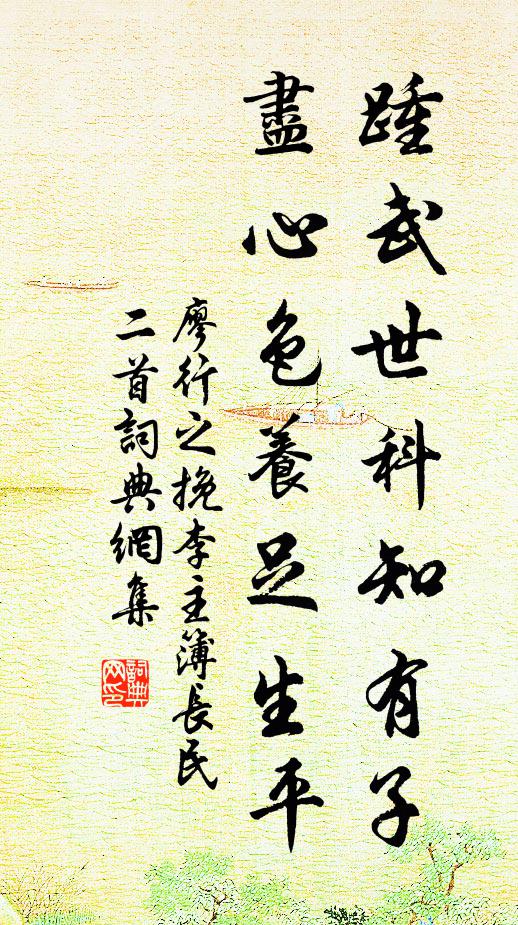 踵武世科知有子
盡心色養足生平
廖行之挽李主簿長民
二首詞典網集
詞典网印